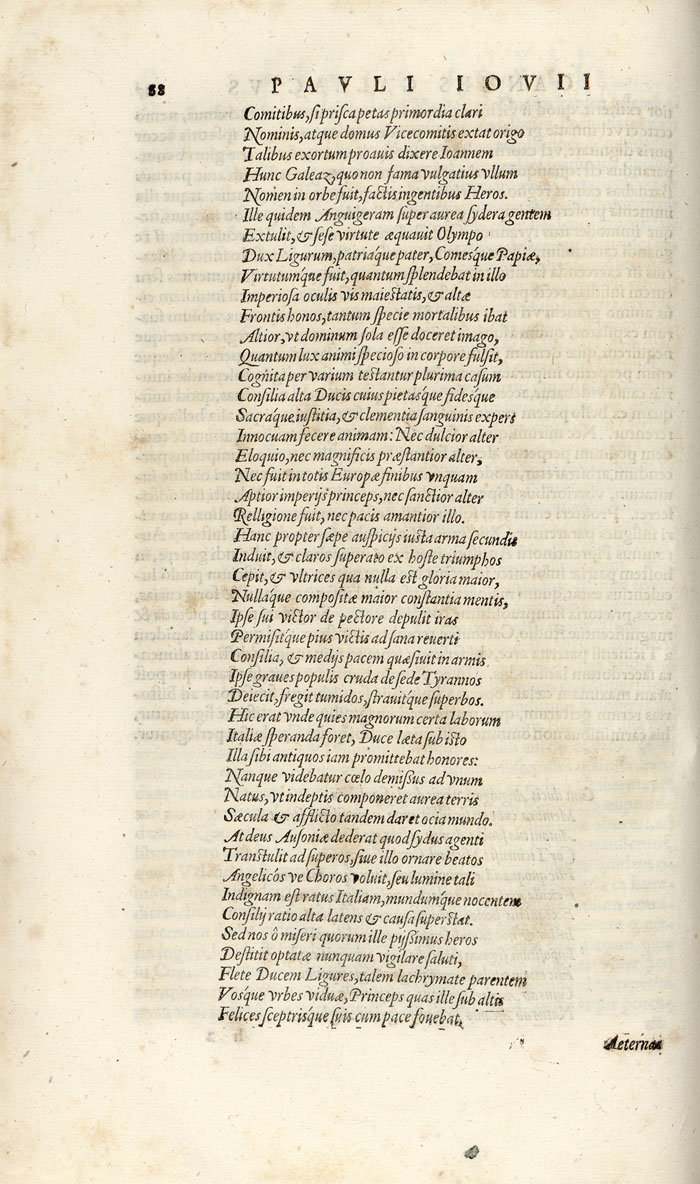 88 PAVLI IOVII
Comitibus, si prisca petas primordia clari
Nominis, atque domus Vicecomitis extat origo
Talibus exortum proauis dixere Ioannem
Hunc Galeaz, quo non fama vulgatius vllum
Nomen in orbe fuit, factis ingentibus Heros.
Ille quidem Anguigeram super aurea sydera gentem
Extulit, & sese virtute æquauit Olympo
Dux Ligurum, patriáque pater, Comesque Papiæ,
Virtutumq́ue fuit, quantum splendebat in illo
Imperiosa oculis vis maiestatis, & altæ
Frontis honos, tantum specie mortalibus ibat
Altior, vt dominum sola esse doceret imago,
Quantum lux animi specioso in corpore fulsit,
Cognita per varium testantur plurima casum
Consilia alta Ducis cuius pietasque fidesque
Sacráque iustitia, & clementia sanguinis expers
Innocuam fecere animam: Nec dulcior alter
Eloquio, nec magnificis præstantior alter,
Nec fuit in totis Europæ finibus vnquam
Aptior imperijs princeps, nec sanctior alter
Relligione fuit, nec pacis amantior illo.
Hanc propter sæpe auspicijs iusta arma secundis
Induit, & claros superato ex hoste triumphos
Cepit, & vltrices qua nulla est gloria maior,
Nullaque compositæ maior constantia mentis,
Ipse sui victor de pectore depulit iras
Permisitq́ue pius victis ad sana reuerti
Consilia, & medijs pacem quæsiuit in armis.
Ipse graues populis cruda de sede Tyrannos
Deiecit, fregit tumidos, strauitq́ue superbos.
Hic erat vnde quies magnorum certa laborum
Italiæ speranda foret, Duce læta sub isto
Illa sibi antiquos iam promittebat honores:
Nanque videbatur cœlo demissus ad vnum
Natus, vt indeptis componeret aurea terris
Sæcula & afflicto tandem daret ocia mundo.
At deus Ausoniæ dederat quod sydus agenti
Transtulit ad superos, siue illo ornare beatos
Angelicós ve Choros voluit, seu lumine tali
Indignam est ratus Italiam, mundumq́ue nocentem
Consilij ratio alta latens & causa superstat.
Sed nos ô miseri quorum ille pijssimus heros
Destitit optatæ nunquam vigilare saluti,
Flete Ducem Ligures, talem lachrymate parentem
Vosq́ue vrbes viduæ, Princeps quas ille sub altis
Felices sceptrisque suis cum pace fouebat.
Aeternas